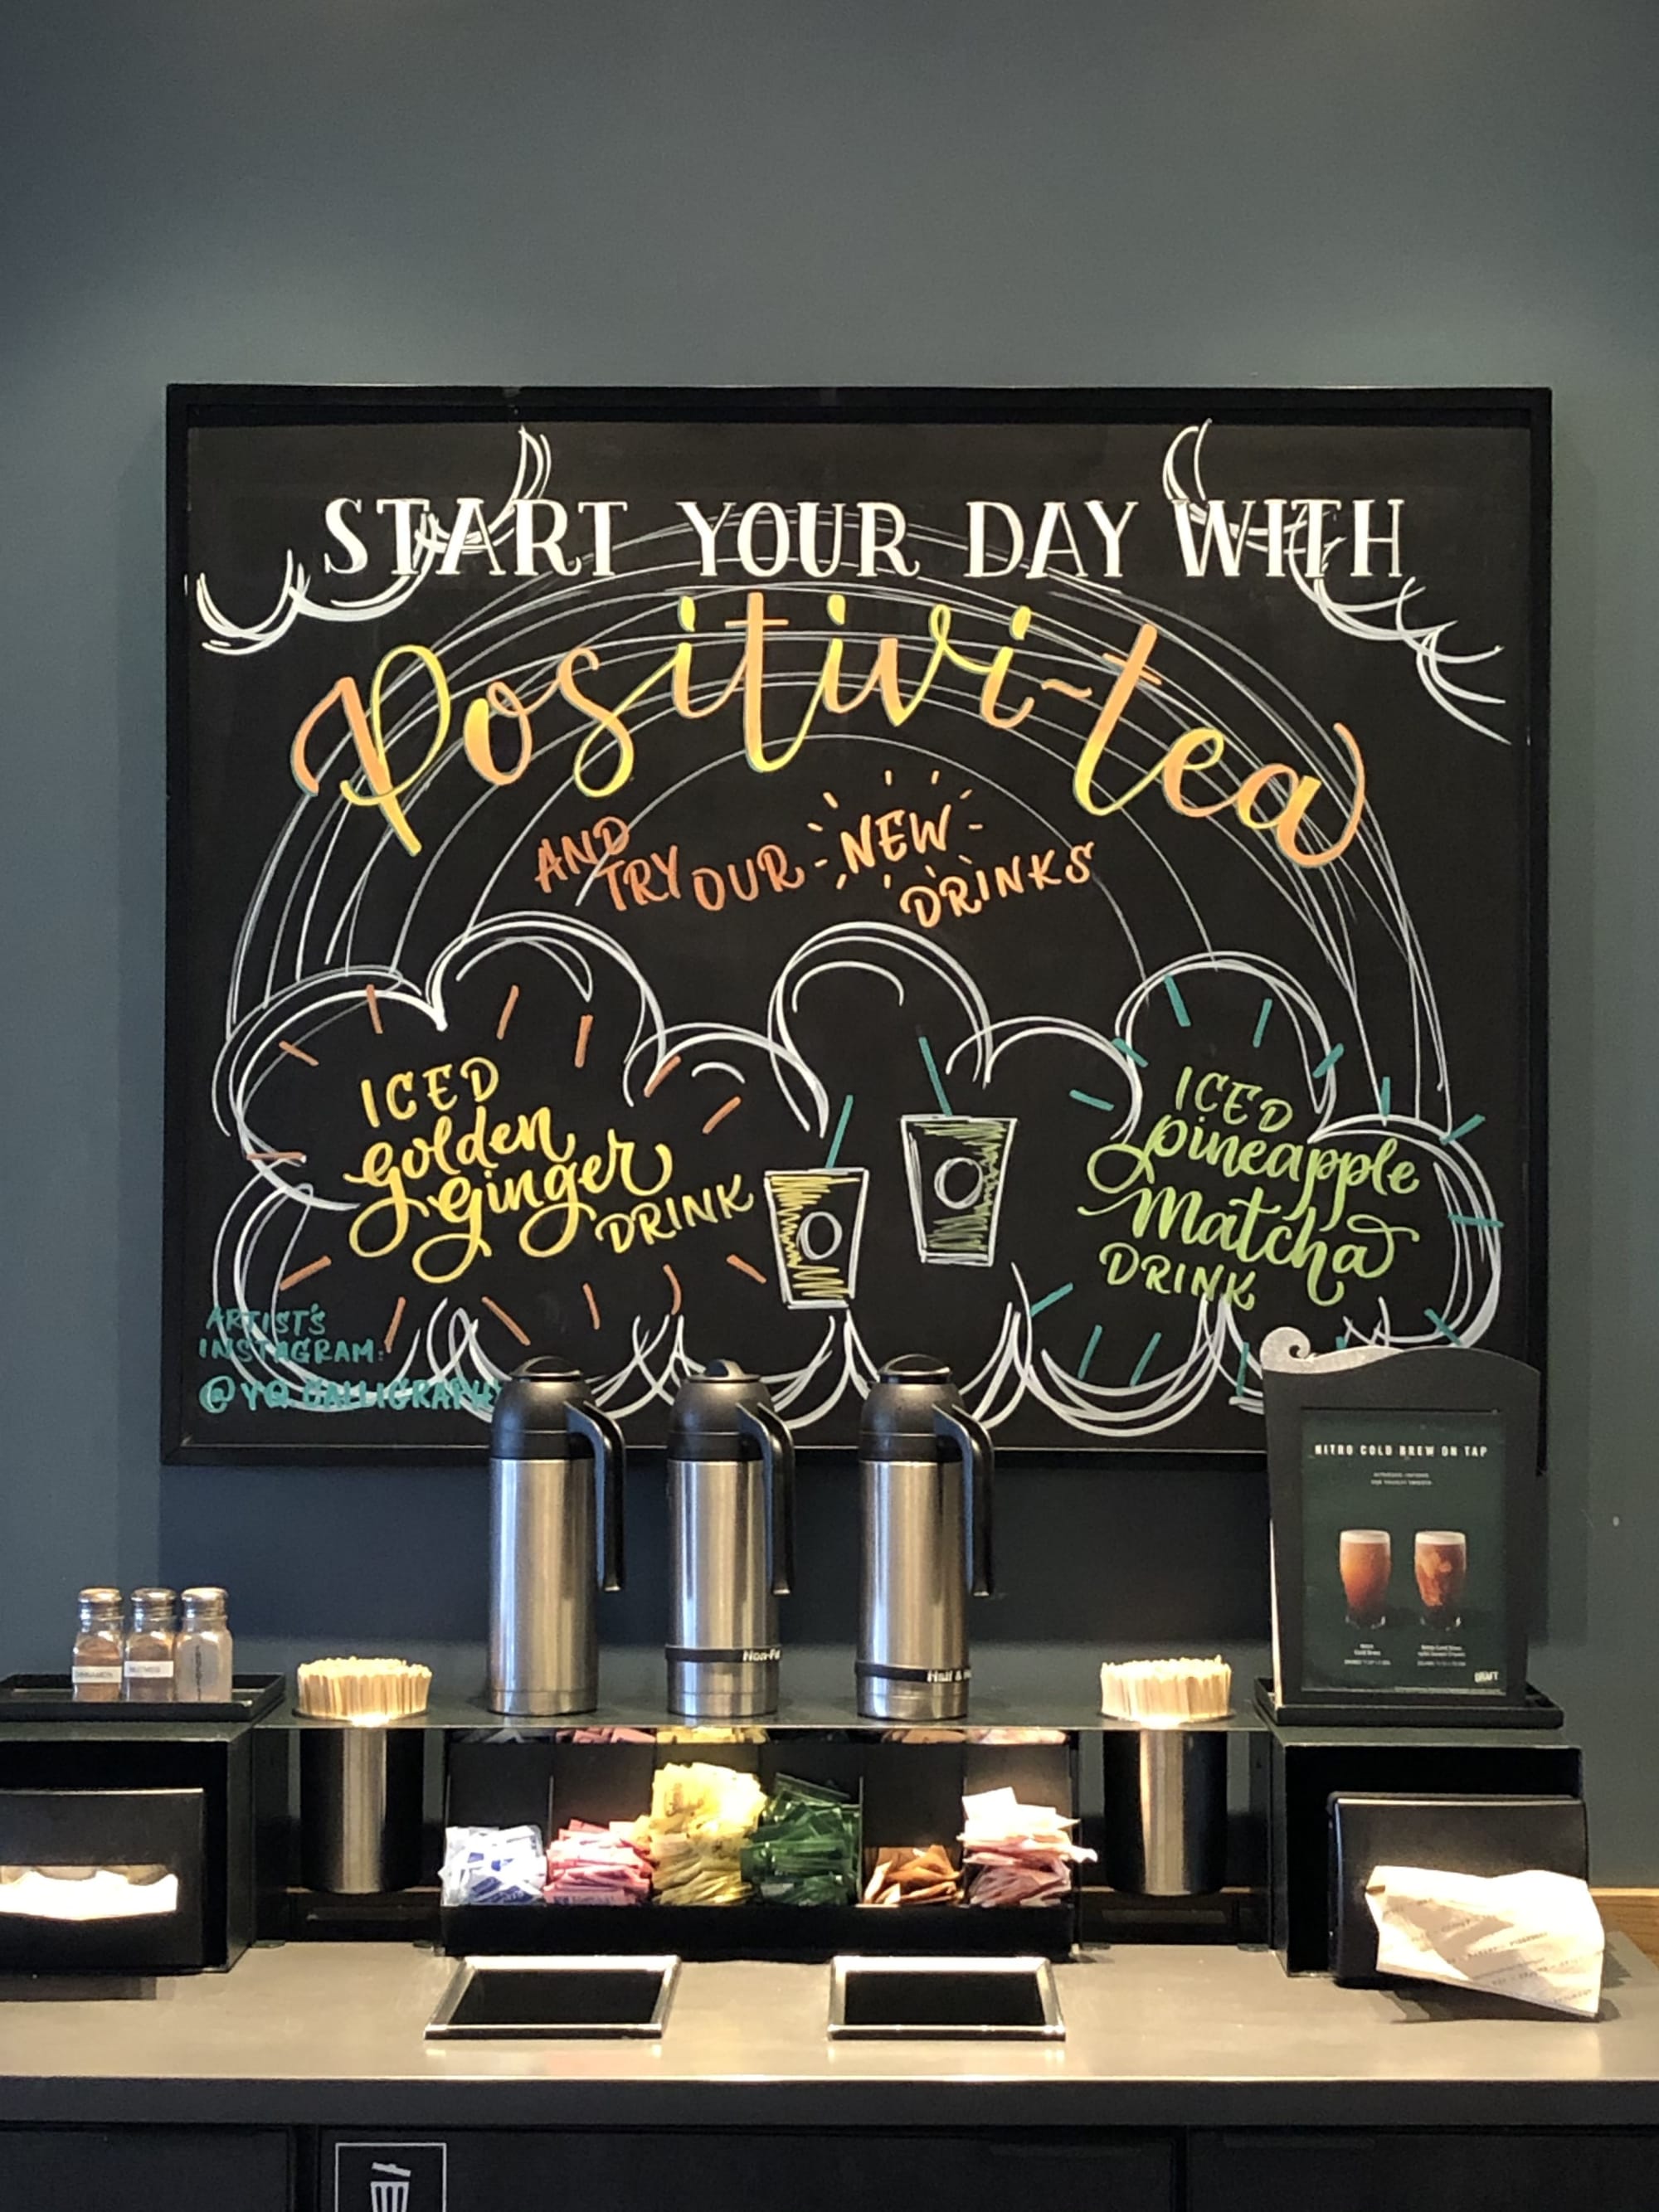 START YOUR DAY WITH
Positivi-tea
AND TRY OUR NEW DRINKS
ICED
golden
ginger
DRINK
ICED
pineapple
Matcha
DRINK
ARTIST'S
INSTAGRAM:
@YQ.CALLIGRAPHY
NITRO COLD BREW ON TAP
CINNAMON
NUTMEG
Non-Fa
Half &
DRAFT